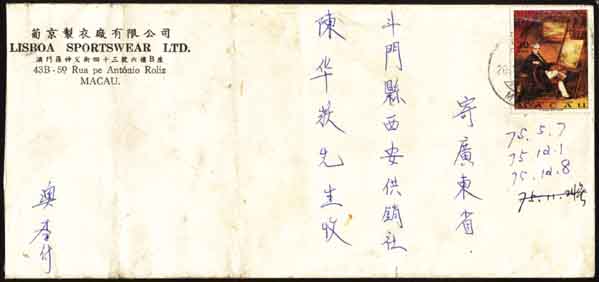 葡京製衣廠有限公司
LISBOA SPORTSWEAR LTD.
澳門羅神父街四十三號六樓B座
43B-59 Rua pe António Roliz
MACAU.
寄廣東省
斗門縣西安供銷社
陳华荻先生收
澳李付
MACAU
75.5.7
75.12.1
75.12.8
75.11.24